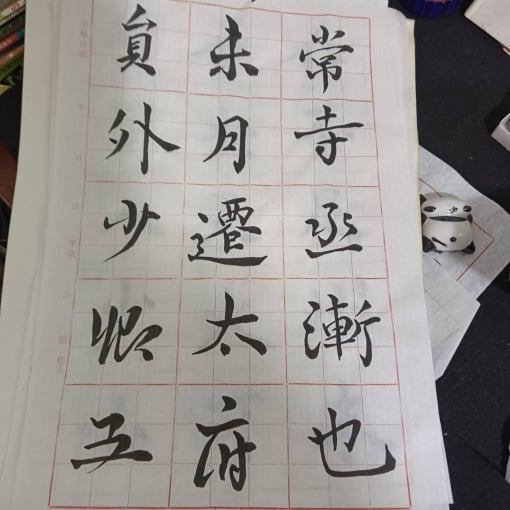 常寺丞漸也
未月遷太府
員外少卿五